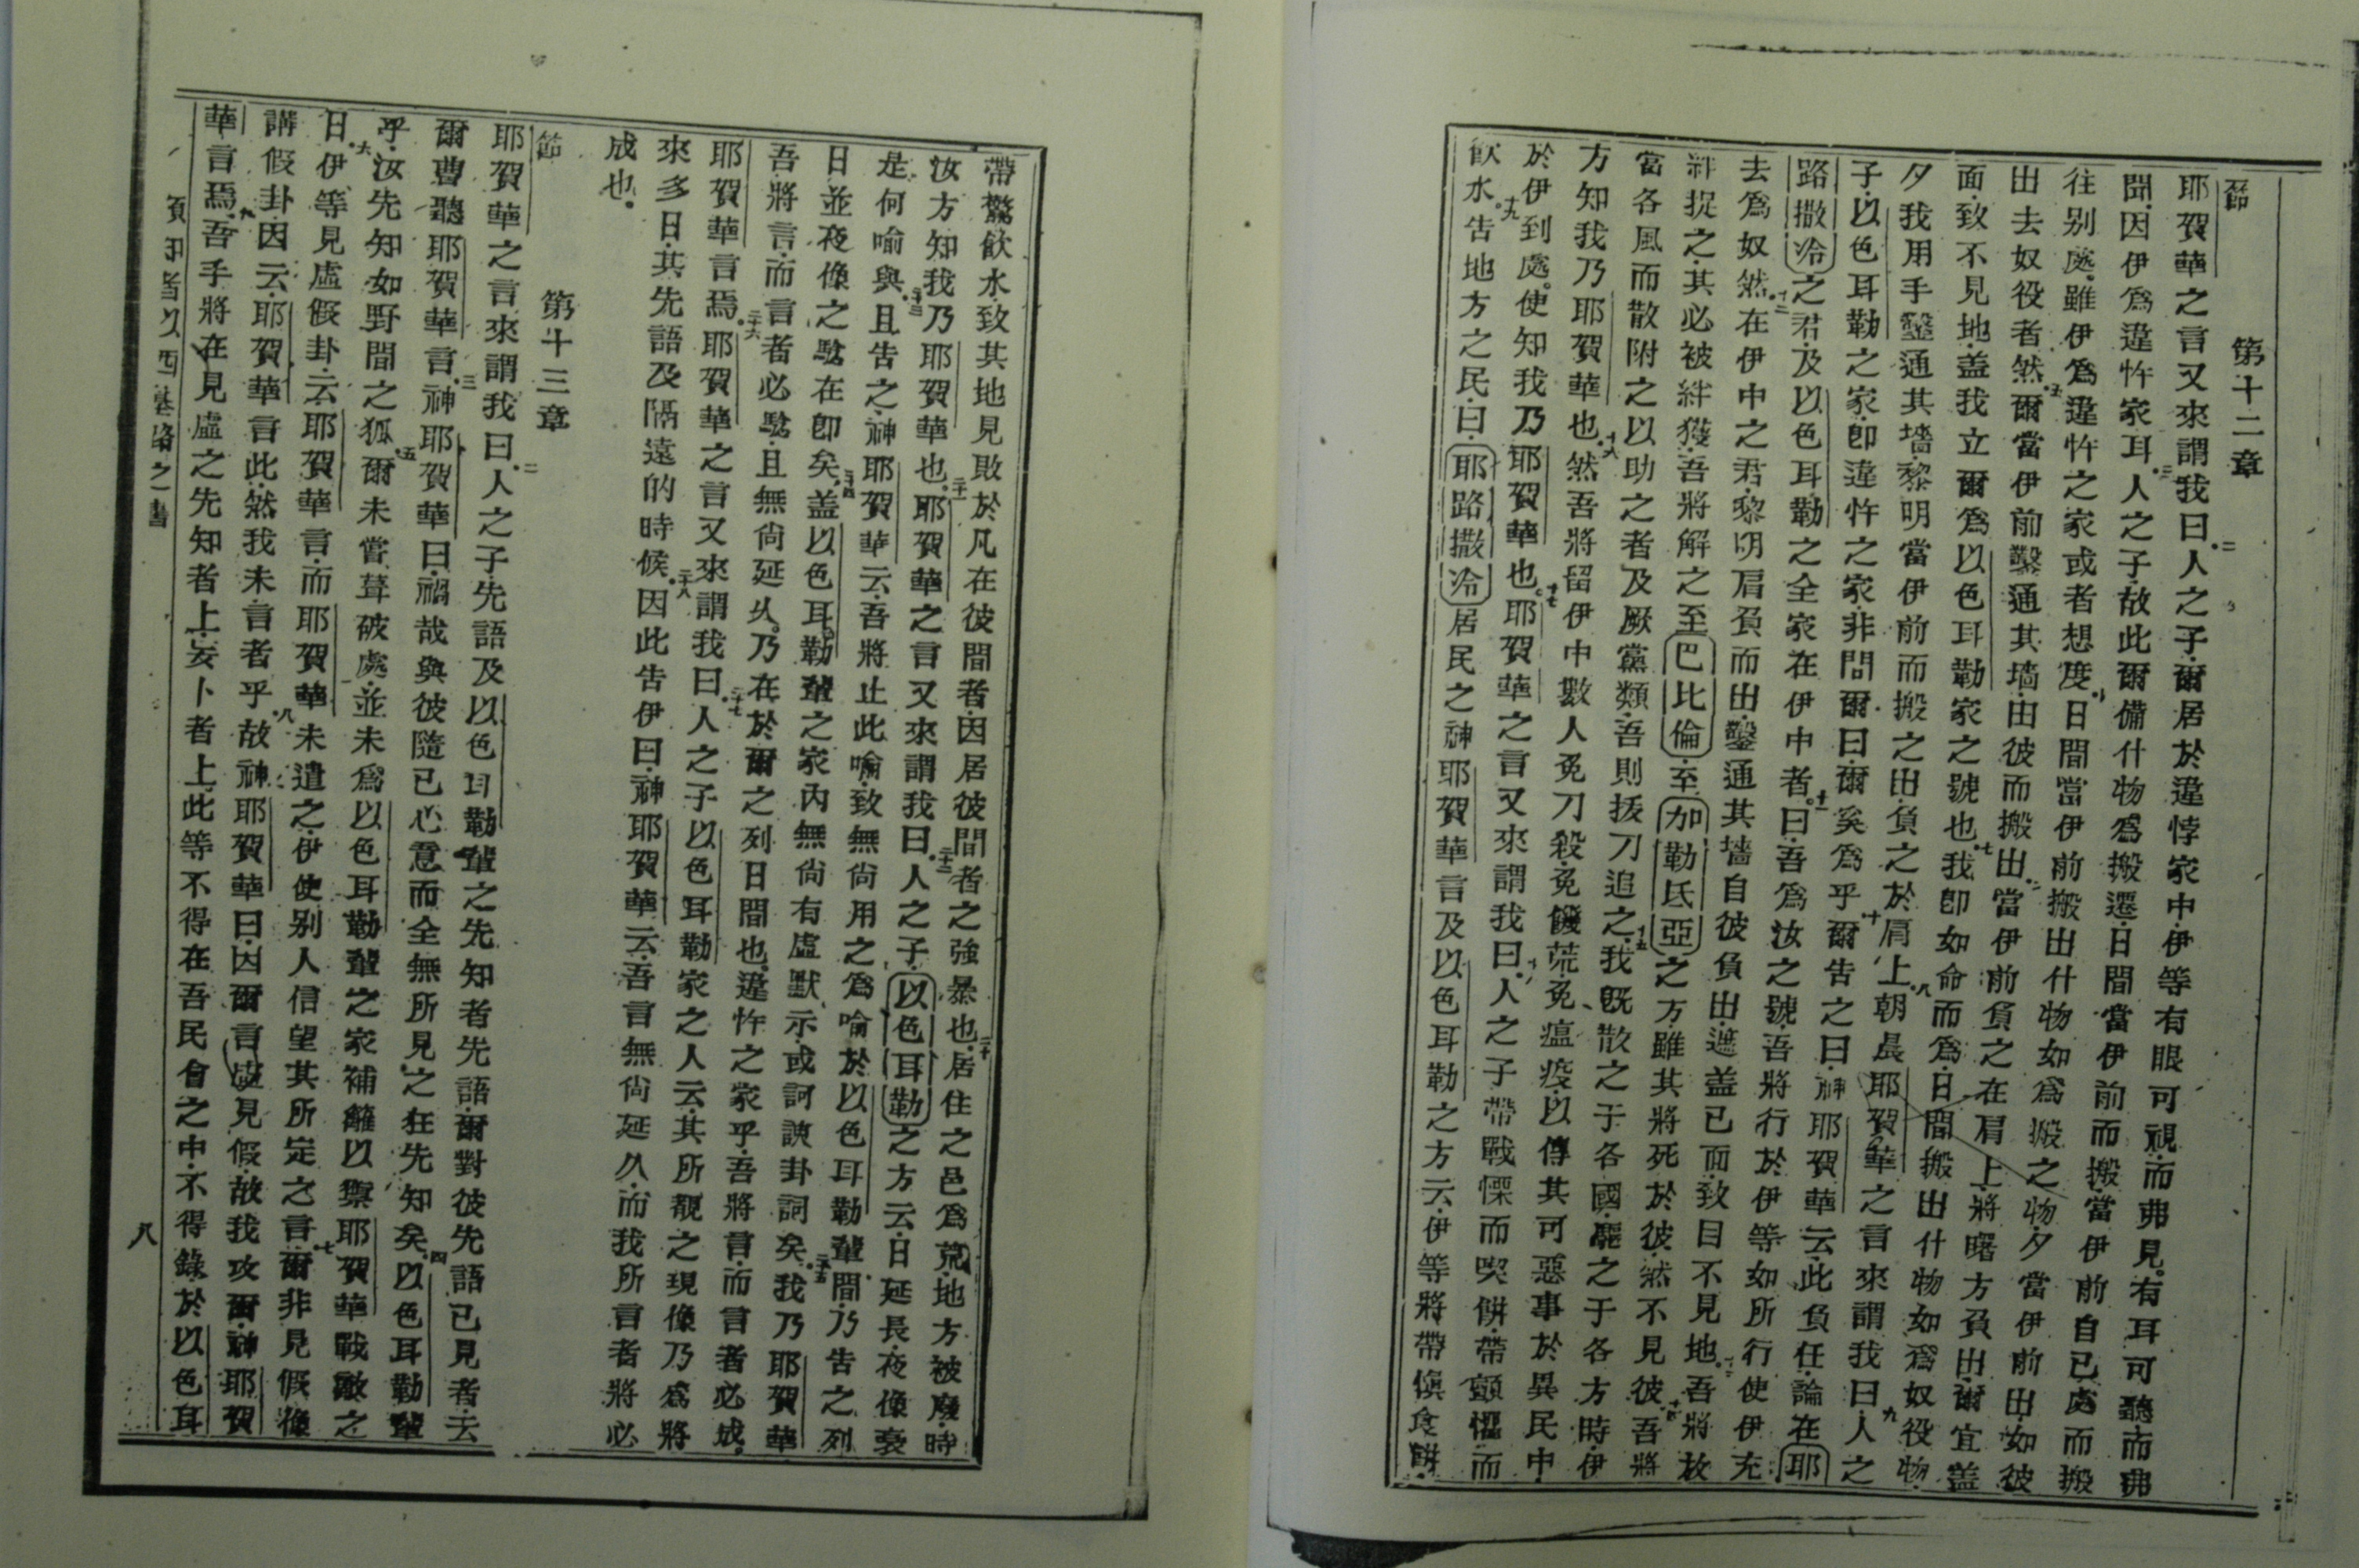 第十二章
節
耶賀華之言又來謂我曰二人之子爾居於違悖家中伊等有眼可視而弗見有耳可聽而弗
聞因伊爲違忤家耳三人之子故此爾備什物爲搬遷日間當伊前而搬當伊前自己處而搬
往别處雖伊爲違忤之家或者想度日間當伊前搬出什物如爲搬之物夕當伊前出如彼
出去奴役者然五爾當伊前鑿通其墻由彼而搬出當伊前負之在肩上將曙方負出爾宜蓋
面致不見地蓋我立爾爲以色耳勒家之號也七我卽如命而爲日間搬出什物如爲奴役物
夕我用手鑿通其墻黎明當伊前而搬之出負之於肩上八朝晨耶賀華之言來謂我曰九人之
子以色耳勒之家卽違忤之家非問爾曰爾奚爲乎十爾告之曰神耶賀華云此負任論在耶
路撒冷之君及以色耳勒之全家在伊中者十一曰吾爲汝之號吾將行於伊等如所行使伊充
去爲奴然十二在伊中之君黎明肩負而出鑿通其墻自彼負出遮蓋己面致目不見地十三吾將放
絆捉之其必被絆獲吾將解之至巴比倫至加勒氐亞之方雖其將死於彼然不見彼十四吾將
當各風而散附之以助之者及厥黨類吾則拔刀追之十五我旣散之于各國羅之于各方時伊
方知我乃耶賀華也十六然吾將留伊中數人免刀殺免饑荒免瘟疫以傳其可惡事於異民中
於伊到處使知我乃耶賀華也十七耶賀華之言又來謂我曰人之子帶戰慄而喫餅帶顫慍而
飲水十九告地方之民曰耶路撒冷居民之神耶賀華言及以色耳勒之方云伊等將帶懼食餅
帶驚飲水致其地見敗於凡在彼間者因居彼間者之強暴也二十居住之邑爲荒地方被廢時
汝方知我乃耶賀華也二十一耶賀華之言又來謂我曰二十二人之子以色耳勒之方云日延長夜像衰
是何喻與二十三且告之神耶賀華云吾將止此喻致無尙用之爲喻於以色耳勒輩間乃告之列
日並夜像之騐在卽矣二十四蓋以色耳勒輩之家內無尙有虛默示或訶諛卦詞矣二十五我乃耶賀華
吾將言而言者必騐且無尙延久乃在於爾之列日間也違忤之家乎吾將言而言者必成
耶賀華言焉二十六耶賀華之言又來謂我曰二十七人之子以色耳勒家之人云其所覩之現像乃爲將
來多日其先語及隔遠的時候二十八因此告伊曰神耶賀華云吾言無尙延久而我所言者將必
成也
第十三章
節
耶賀華之言來謂我曰二人之子先語及以色耳勒輩之先知者先語爾對彼先語已見者云
爾曹聽耶賀華言三神耶賀華曰禍哉與彼隨己心意而全無所見之狂先知矣四以色耳勒輩
乎汝先知如野間之狐五爾未嘗葺破處並未爲以色耳勒輩之家補籬以禦耶賀華戰敵之
日六伊等見虛假卦云耶賀華言而耶賀華未遣之伊使别人信望其所定之言七爾非見假像
講假卦因云耶賀華言此然我未言者乎八故神耶賀華曰因爾言虛見假故我攻爾神耶賀
華言焉九吾手將在見虛之先知者上妄卜者上此等不得在吾民會之中不得錄於以色耳
預知者以西基路之書
八